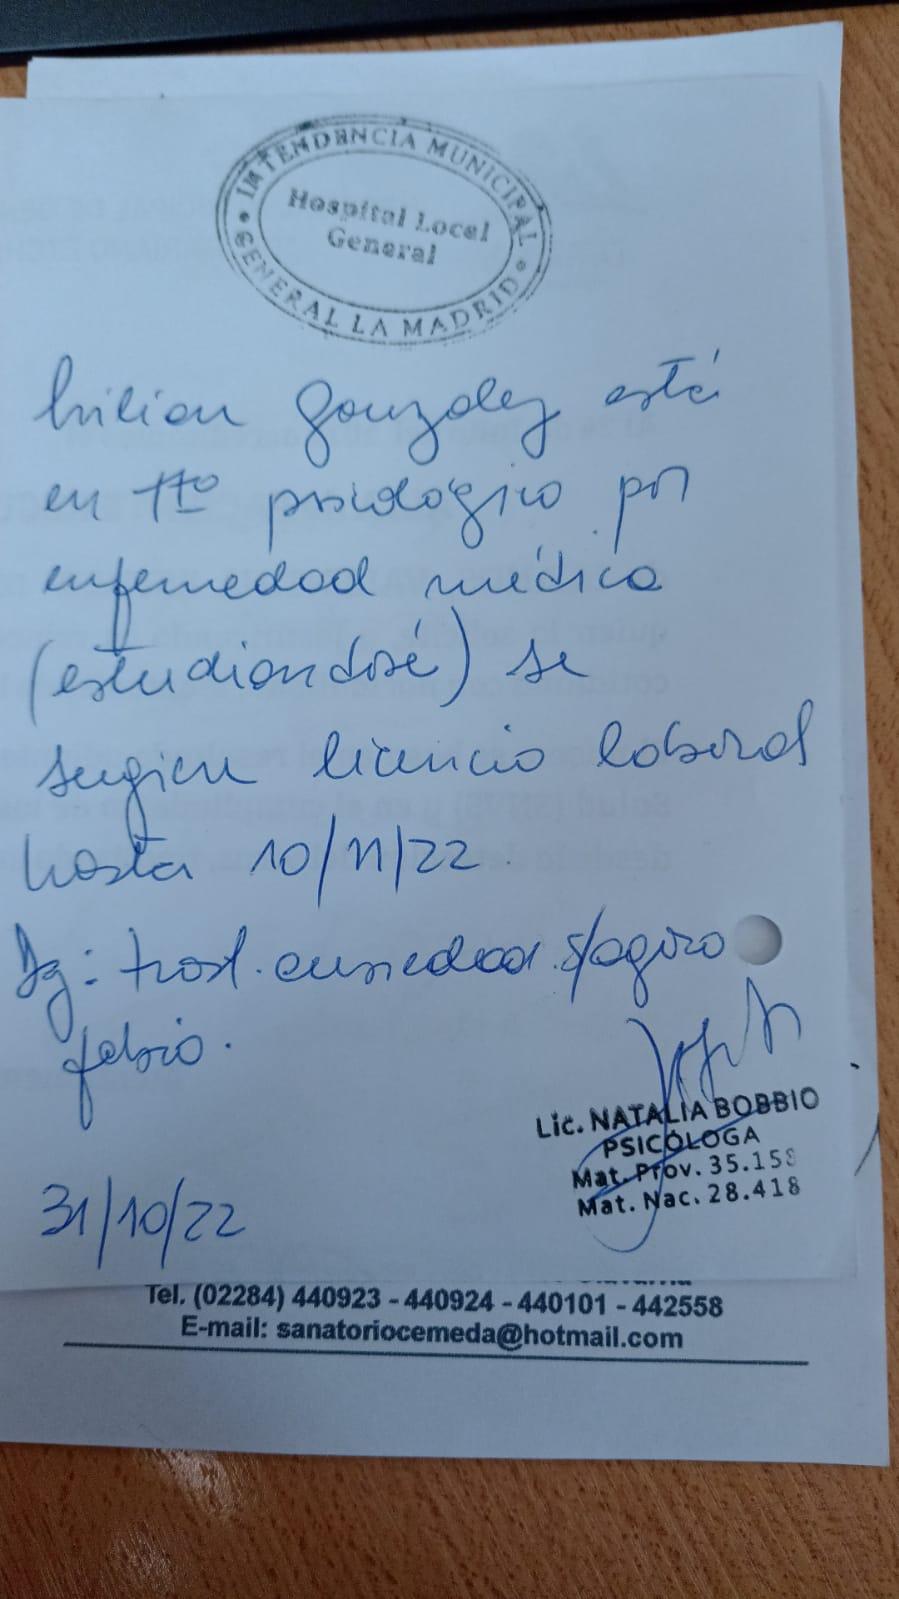 INTENDENCIA MUNICIPAL
Hospital Local
General
GENERAL LA MADRID
Lilian Gonzalez está
en tto psicológico por
enfermedad médica
(estudiandosé) se
sugiere licencia laboral
hasta 10/11/22
Dg: trast. ansiedad s/agora
fobia.
Lic. NATALIA BOBBIO
PSICÓLOGA
Mat. Prov. 35.158
Mat. Nac. 28.418
31/10/22
Tel. (02284) 440923 - 440924 - 440101 - 442558
E-mail: sanatoriocemeda@hotmail.com